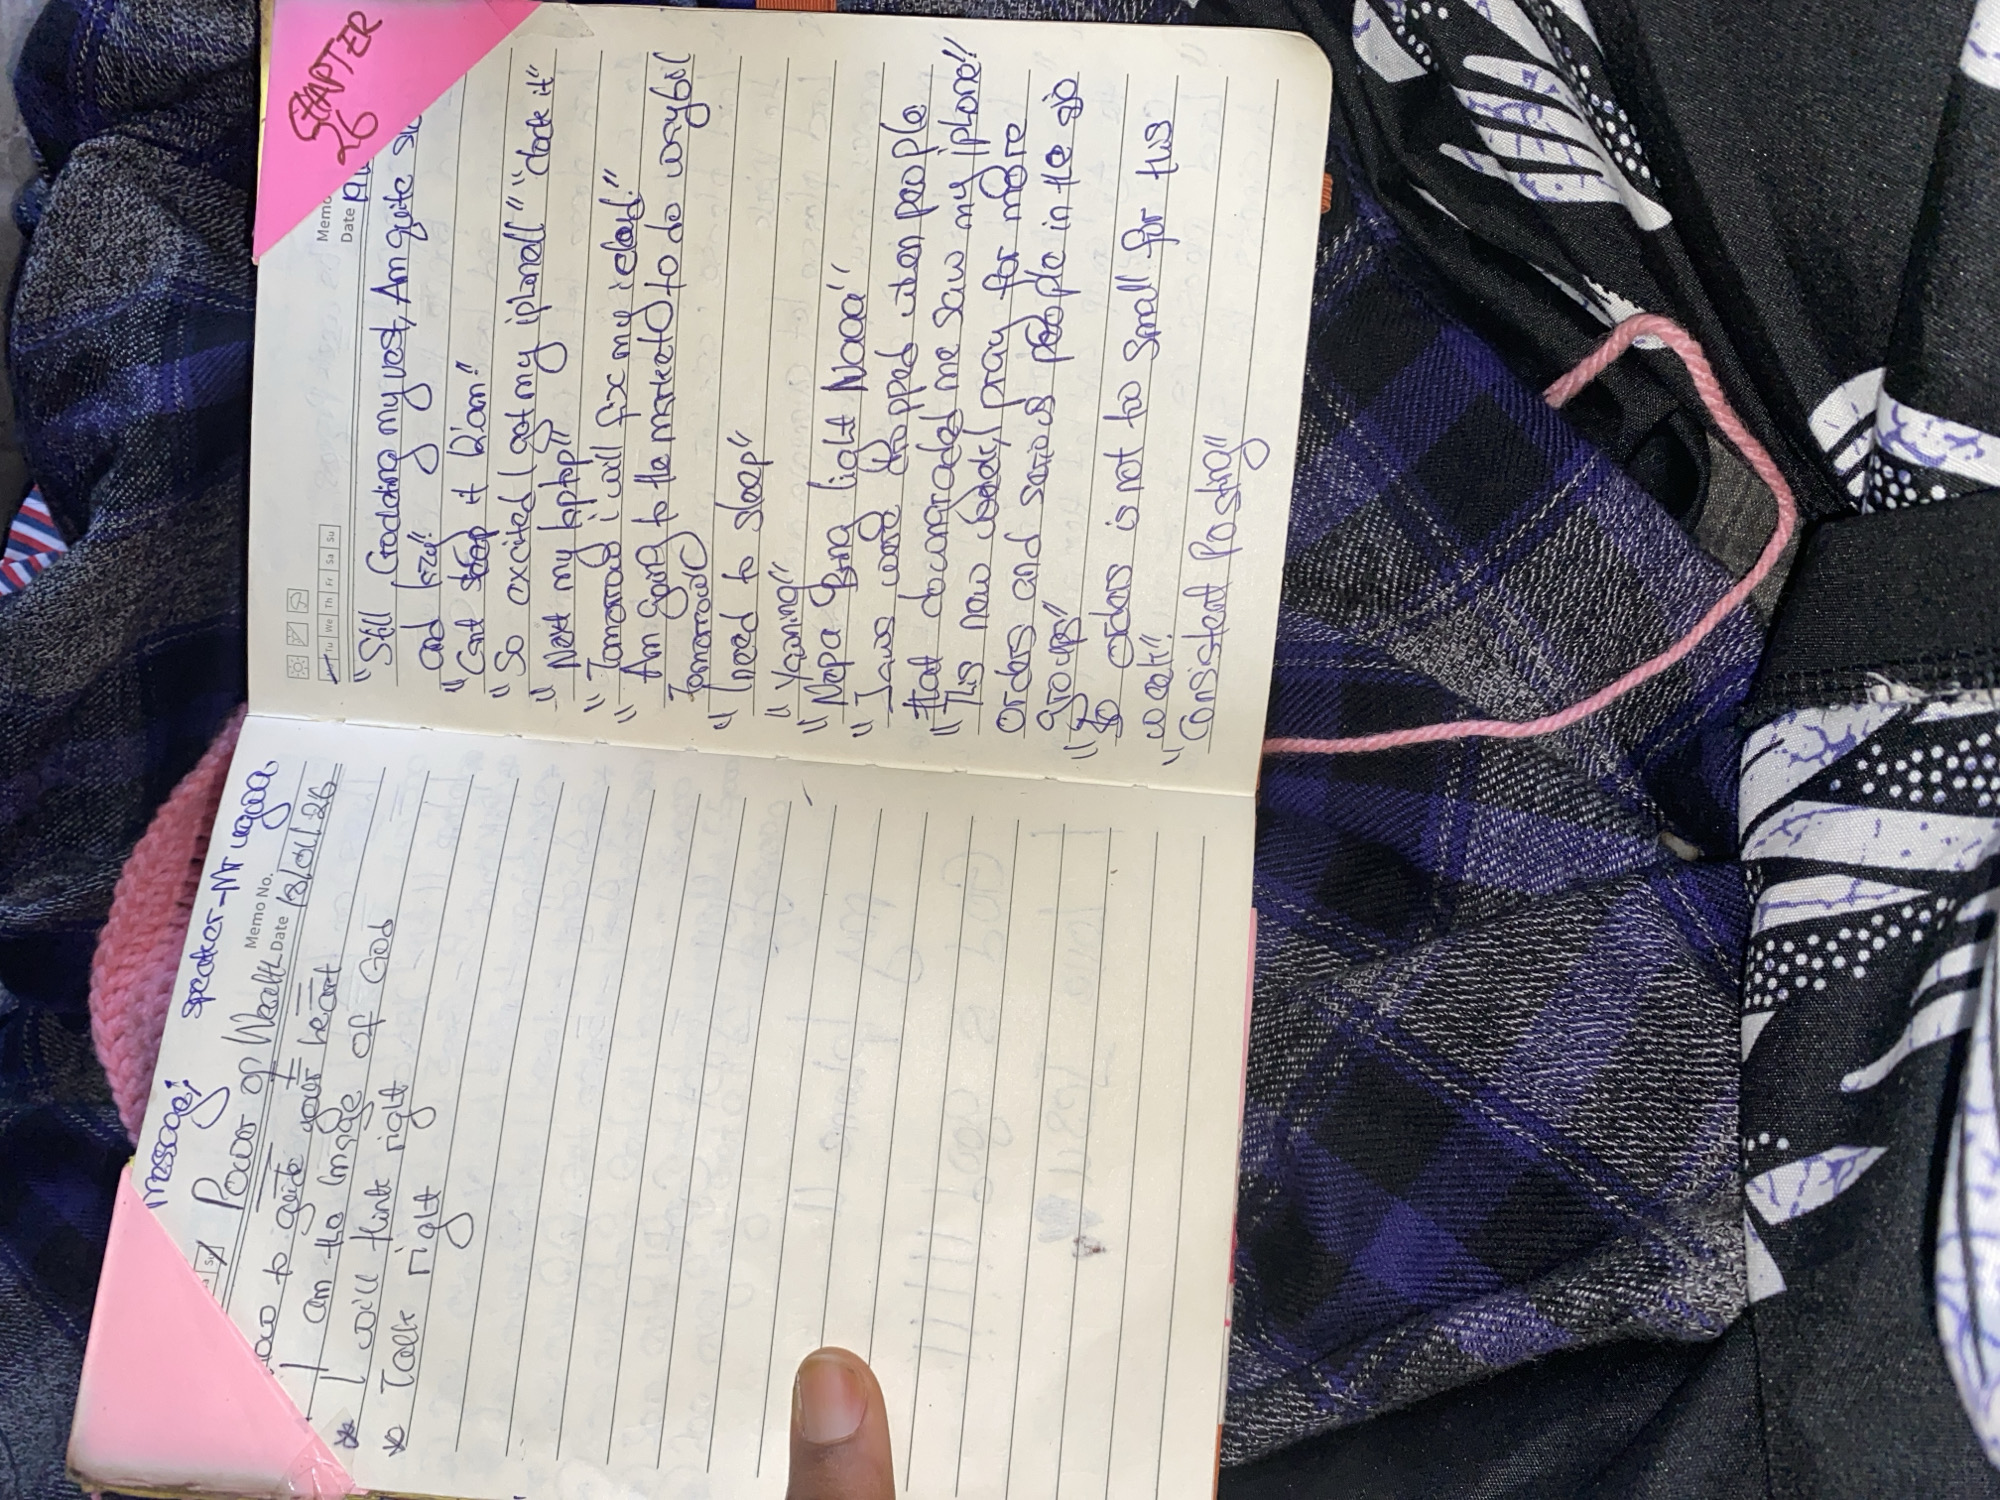 Message; Speaker-Mr ugoaa
Power of Wealth
Memo No.
Date 18/01/26
to guide your heart
I am the Image of God
I will think right
Talk right
right
STAPTER
26
Memo
Tu We Th Fr Sa Su
Date
"Still Crocheting my vest, Am quite
and
" Cant stop it
" So excited I got my iphone11" "dark it"
" Next my laptop"
" Tomorrow i will fix my iclod."
" Am going to the market to do waybil
Tomorrow
" I need to sleep"
" Yawning"
" Nepa Bring light Naaa"
" Jaws were dropped when people
that downgraded me saw my iphone"
" This new week, I pray for more
orders and serious people in the
groups"
" 50 orders is not to small for this
week"
" Consistent Posting"